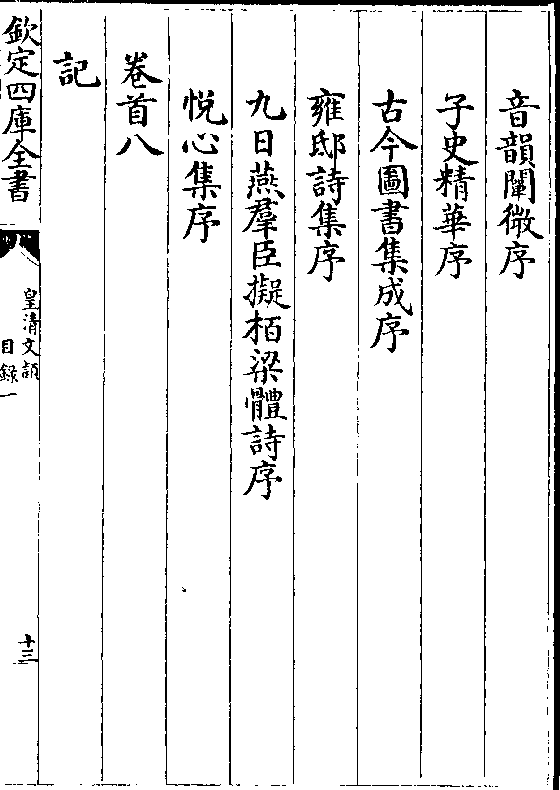 音韻闡微序
子史精華序
古今圖書集成序
雍邸詩集序
九日燕羣臣擬栢梁體詩序
悅心集序
卷首八
記
欽定四庫全書
皇清文頴
目錄一
十三